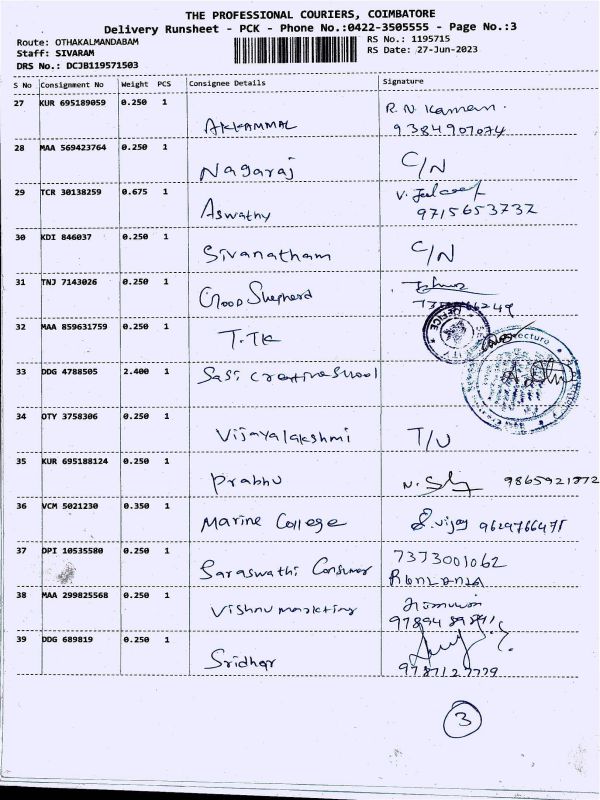 THE PROFESSIONAL COURIERS, COIMBATORE
Delivery Runsheet - PCK - Phone No.:0422-3505555 - Page No.:3
Route: OTHAKALMANDABAM
RS No.: 1195715
Staff: SIVARAM
RS Date: 27-Jun-2023
DRS No.: DCJB119571503
S No Consignment No Weight PCS Consignee Details Signature
27 KUR 695189059 0.250 1 AKKAMMAL
9384907074
28 MAA 569423764 0.250 1 Nagaraj C/N
29 TCR 30138259 0.675 1 Aswathy
9715653732
30 KDI 846037 0.250 1 Sivanatham C/N
31 TNJ 7143026 0.250 1 Good Shepherd
32 MAA 859631759 0.250 1 T.TK
OFFICE
33 DDG 4788505 2.400 1 Sasi Creative School
34 OTY 3758306 0.250 1 Vijayalakshmi T/U
35 KUR 695188124 0.250 1 Prabhu
36 VCM 5021230 0.350 1 Marine College S.Vijay 9629766475
37 DPI 10535580 0.250 1 Saraswathi Consumer 7373001062
38 MAA 299825568 0.250 1 Vishnu marketing
39 DDG 689819 0.250 1 Sridhar
3